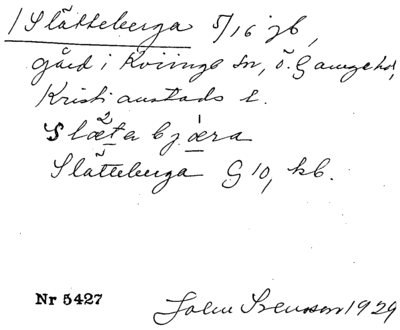 / Slätteberga 5/16 jb,
gård i Kviinge sn, Ö. Gönge hd,
Kristianstads l.
Slætabjæra
Slätteberga G 10, kb.
Nr 5427 John Svensson 1929